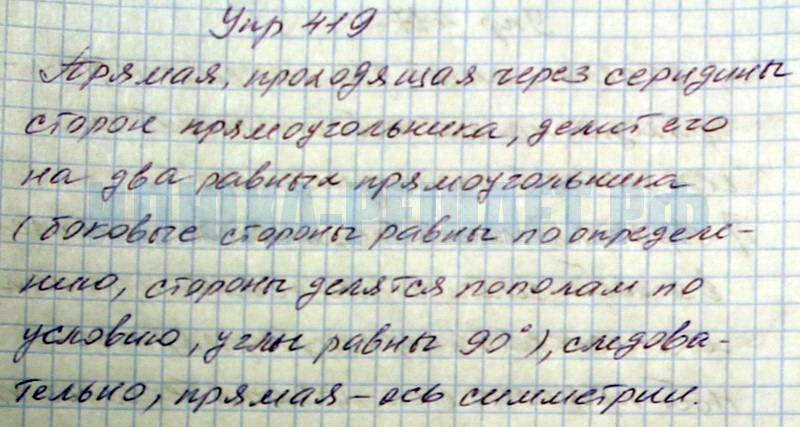 Упр 419
Прямая, проходящая через середины
сторон прямоугольника, делит его
на два равных прямоугольника
(боковые стороны равны по определе-
нию, стороны делятся пополам по
условию, углы равны 90°), следова-
тельно, прямая – ось симметрии.